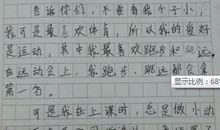 告诉你们，不要看我个子小，
我可是最喜欢体育，所以我的爱好
是运动，其中我最喜欢跑步和跳远。
在运动会上，我跑步、跳远都会拿
第一名。
可是我在上课时，总是做小动
显示比例: 68